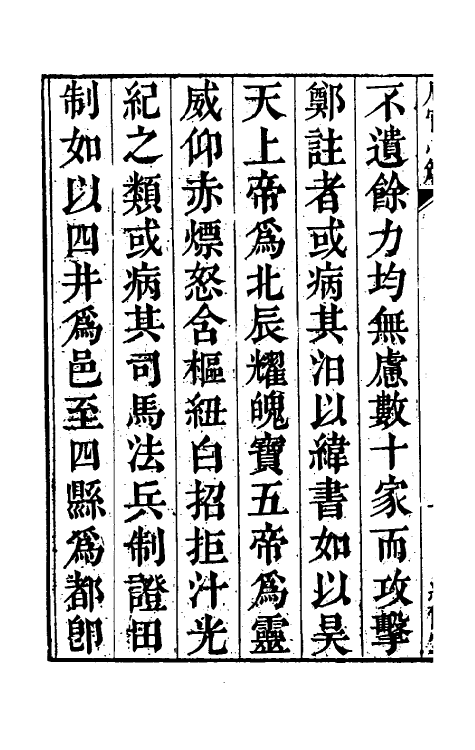 不遺餘力均無慮數十家而攻擊
鄭註者或病其汩以緯書如以昊
天上帝爲北辰耀魄寶五帝爲靈
威仰赤熛怒含樞紐白招拒汁光
紀之類或病其司馬法兵制證田
制如以四井爲邑至四縣爲都卽